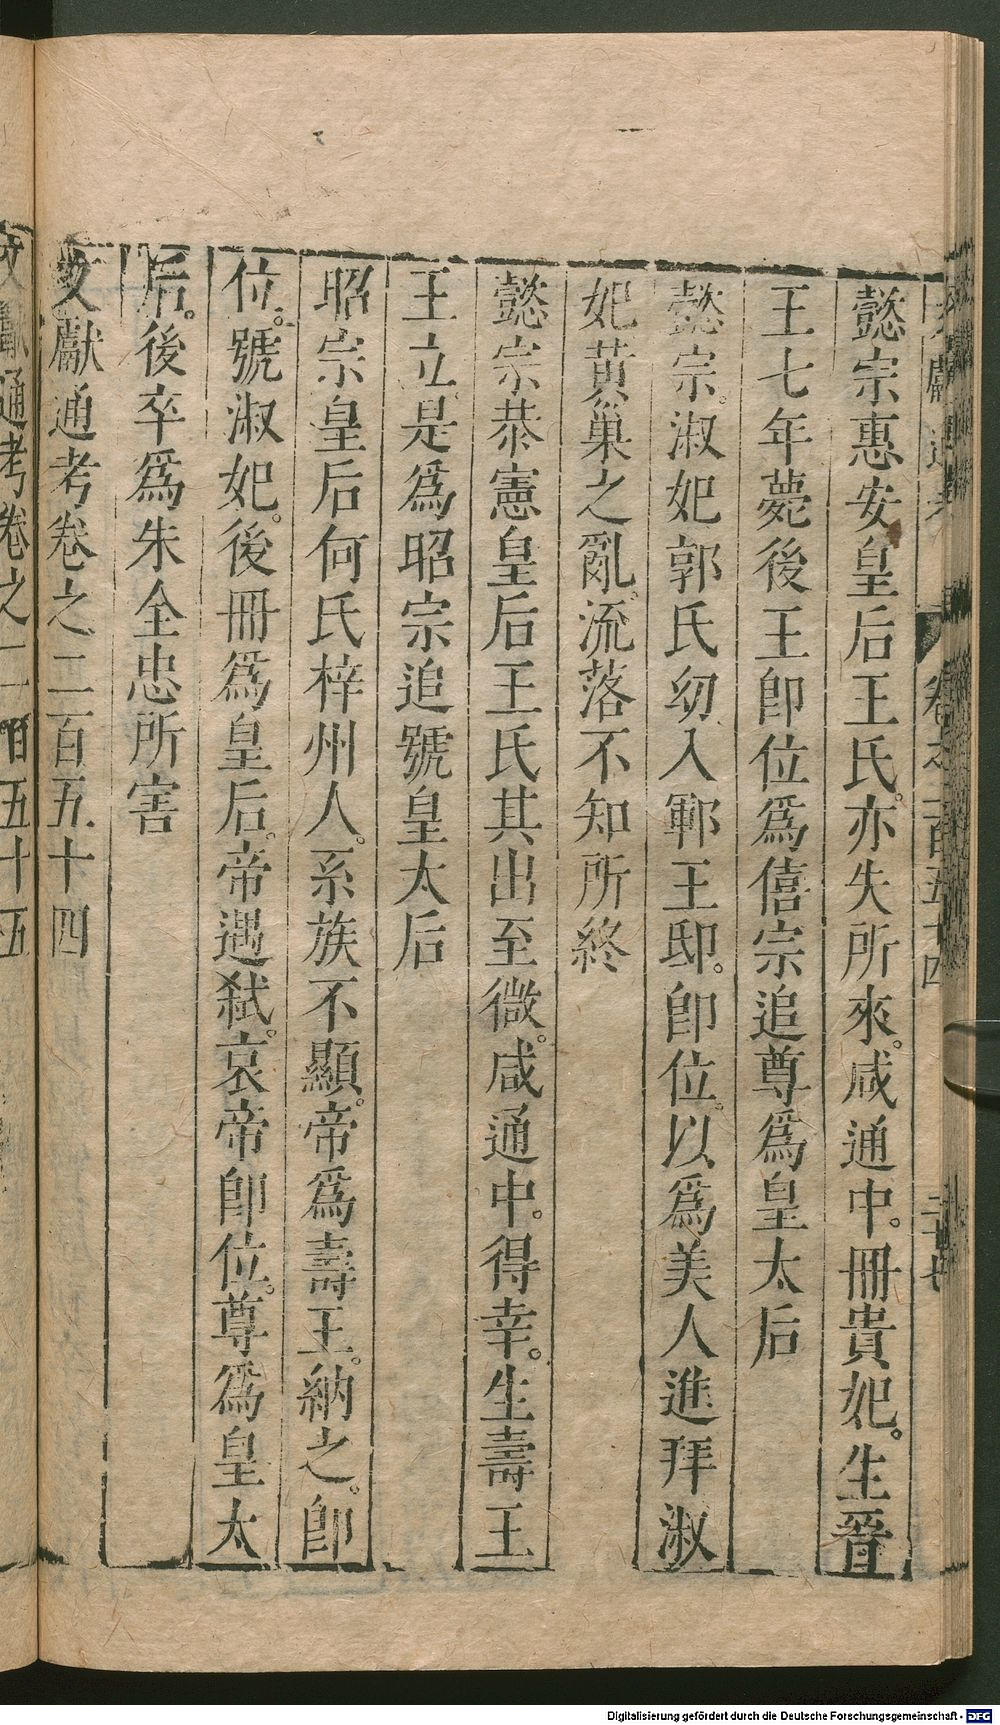 懿宗惠安皇后王氏。亦失所來。咸通中。冊貴妃。生晉
王七年薨後王卽位爲僖宗追尊爲皇太后
懿宗。淑妃郭氏幼入鄆王邸。卽位。以爲美人進拜淑
妃黄巢之亂。流落不知所終
懿宗恭憲皇后王氏其出至微。咸通中。得幸。生壽王
王立。是爲昭宗追號皇太后
昭宗皇后何氏梓州人。系族不顯。帝爲壽王。納之。卽
位。號淑妃。後冊爲皇后。帝遇弑。哀帝卽位。尊爲皇太
后。後卒爲朱全忠所害
文獻通考卷之二百五十四
文獻通考卷之二百五十五
Digitalisierung gefördert durch die Deutsche Forschungsgemeinschaft - DFG